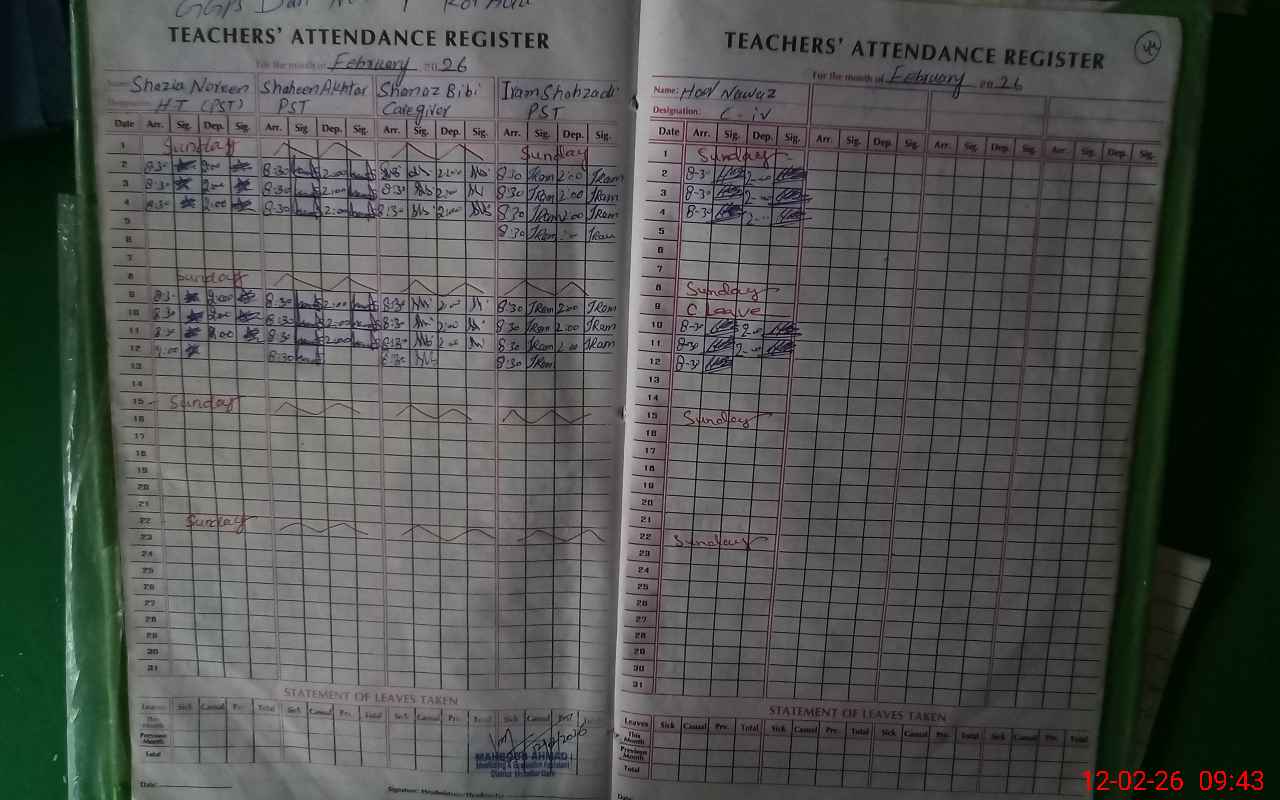 TEACHERS' ATTENDANCE REGISTER
For the month of February 2026
Name: Shazia Noreen Shaheen Akhtar Shanaz Bibi Iram Shahzadi
H.T (PST) PST Caregiver PST
Date Arr. Sig. Dep. Sig. Arr. Sig Dep. Sig. Arr. Sig. Dep. Sig. Arr. Sig. Dep. Sig.
1 Sunday Sunday
2 8:30 2:00 8:30 2:00 8:30 2:00 8:30 Iram 2:00 Iram
3 8:30 2:00 8:30 2:00 8:30 2:00 8:30 Iram 2:00 Iram
4 8:30 2:00 8:30 2:00 8:30 2:00 8:30 Iram 2:00 Iram
5 8:30 Iram Iram
6
7
8 Sunday
9 8:30 2:00 8:30 2:00 8:30 2:00 8:30 Iram 2:00 Iram
10 8:30 2:00 8:30 2:00 8:30 2:00 8:30 Iram 2:00 Iram
11 8:30 2:00 8:30 2:00 8:30 2:00 8:30 Iram 2:00 Iram
12 9:00 8:30 8:30 8:30 Iram
13
14
15 Sunday
16
17
18
19
20
21
22 Sunday
23
24
25
26
27
28
29
30
31
STATEMENT OF LEAVES TAKEN
Leaves Sick Casual Prv. Total Sick Casual Prv. Total Sick Casual Prv. Total Sick Casual
This Month
Previous Month
Total
MAHBOOB AHMAD
Monitoring & Evaluation Assistant
Date:
Signature:
TEACHERS' ATTENDANCE REGISTER
44
For the month of February 2026
Name: Haq Nawaz
Designation: C-iv
Date Arr. Sig. Dep. Sig. Arr. Sig. Dep. Sig. Arr. Sig. Dep. Sig. Arr. Sig. Dep. Sig.
1 Sunday
2 8-30 2-00
3 8-30 2-00
4 8-30
5
6
7
8 Sunday
9 C Leave
10 8-30 2-00
11 8-30 2-00
12 8-30
13
14
15 Sunday
16
17
18
19
20
21
22 Sunday
23
24
25
26
27
28
29
30
31
STATEMENT OF LEAVES TAKEN
Leaves Sick Casual Prv. Total Sick Casual Prv. Total Sick Casual Prv. Total Sick Casual Prv. Total
This Month
Previous Month
Total
Date:
12-02-26 09:43